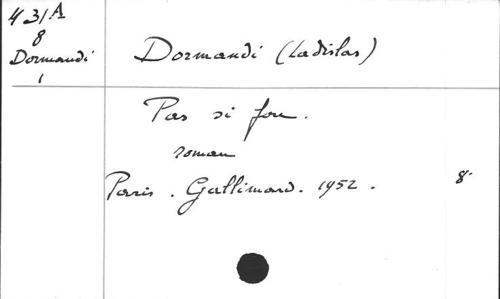 431A
8
Dormandi
1
Dormandi (Ladislas)
Pas si fou.
roman
Paris. Gallimard. 1952. 8°